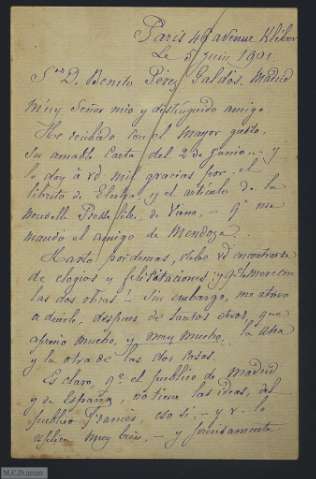 Paris 49 avenue Kléber
Le 5 juin 1901
Sr D. Benito Pérez Galdós. Madrid
Muy Señor mio y distinguido amigo
He recibido con el mayor gusto
su amable carta del 2 de Junio — y
le doy à Vd mil gracias por el
libreto de Electra y el artículo de la
de Viena, — qe me
mando el amigo de Mendoza.
debe Vd encontrarse
de elogios y felicitaciones, y qe
las dos obras — Sin embargo, me atrevo
a decirle, despues de tantos otros, que
aprecio mucho, y muy mucho la una
y la otra de las dos cosas.
Es claro, qe el publico de Madrid
y de España, no tiene las ideas, del
publico Francés, eso si, — y
explica muy bien, — y precisamente